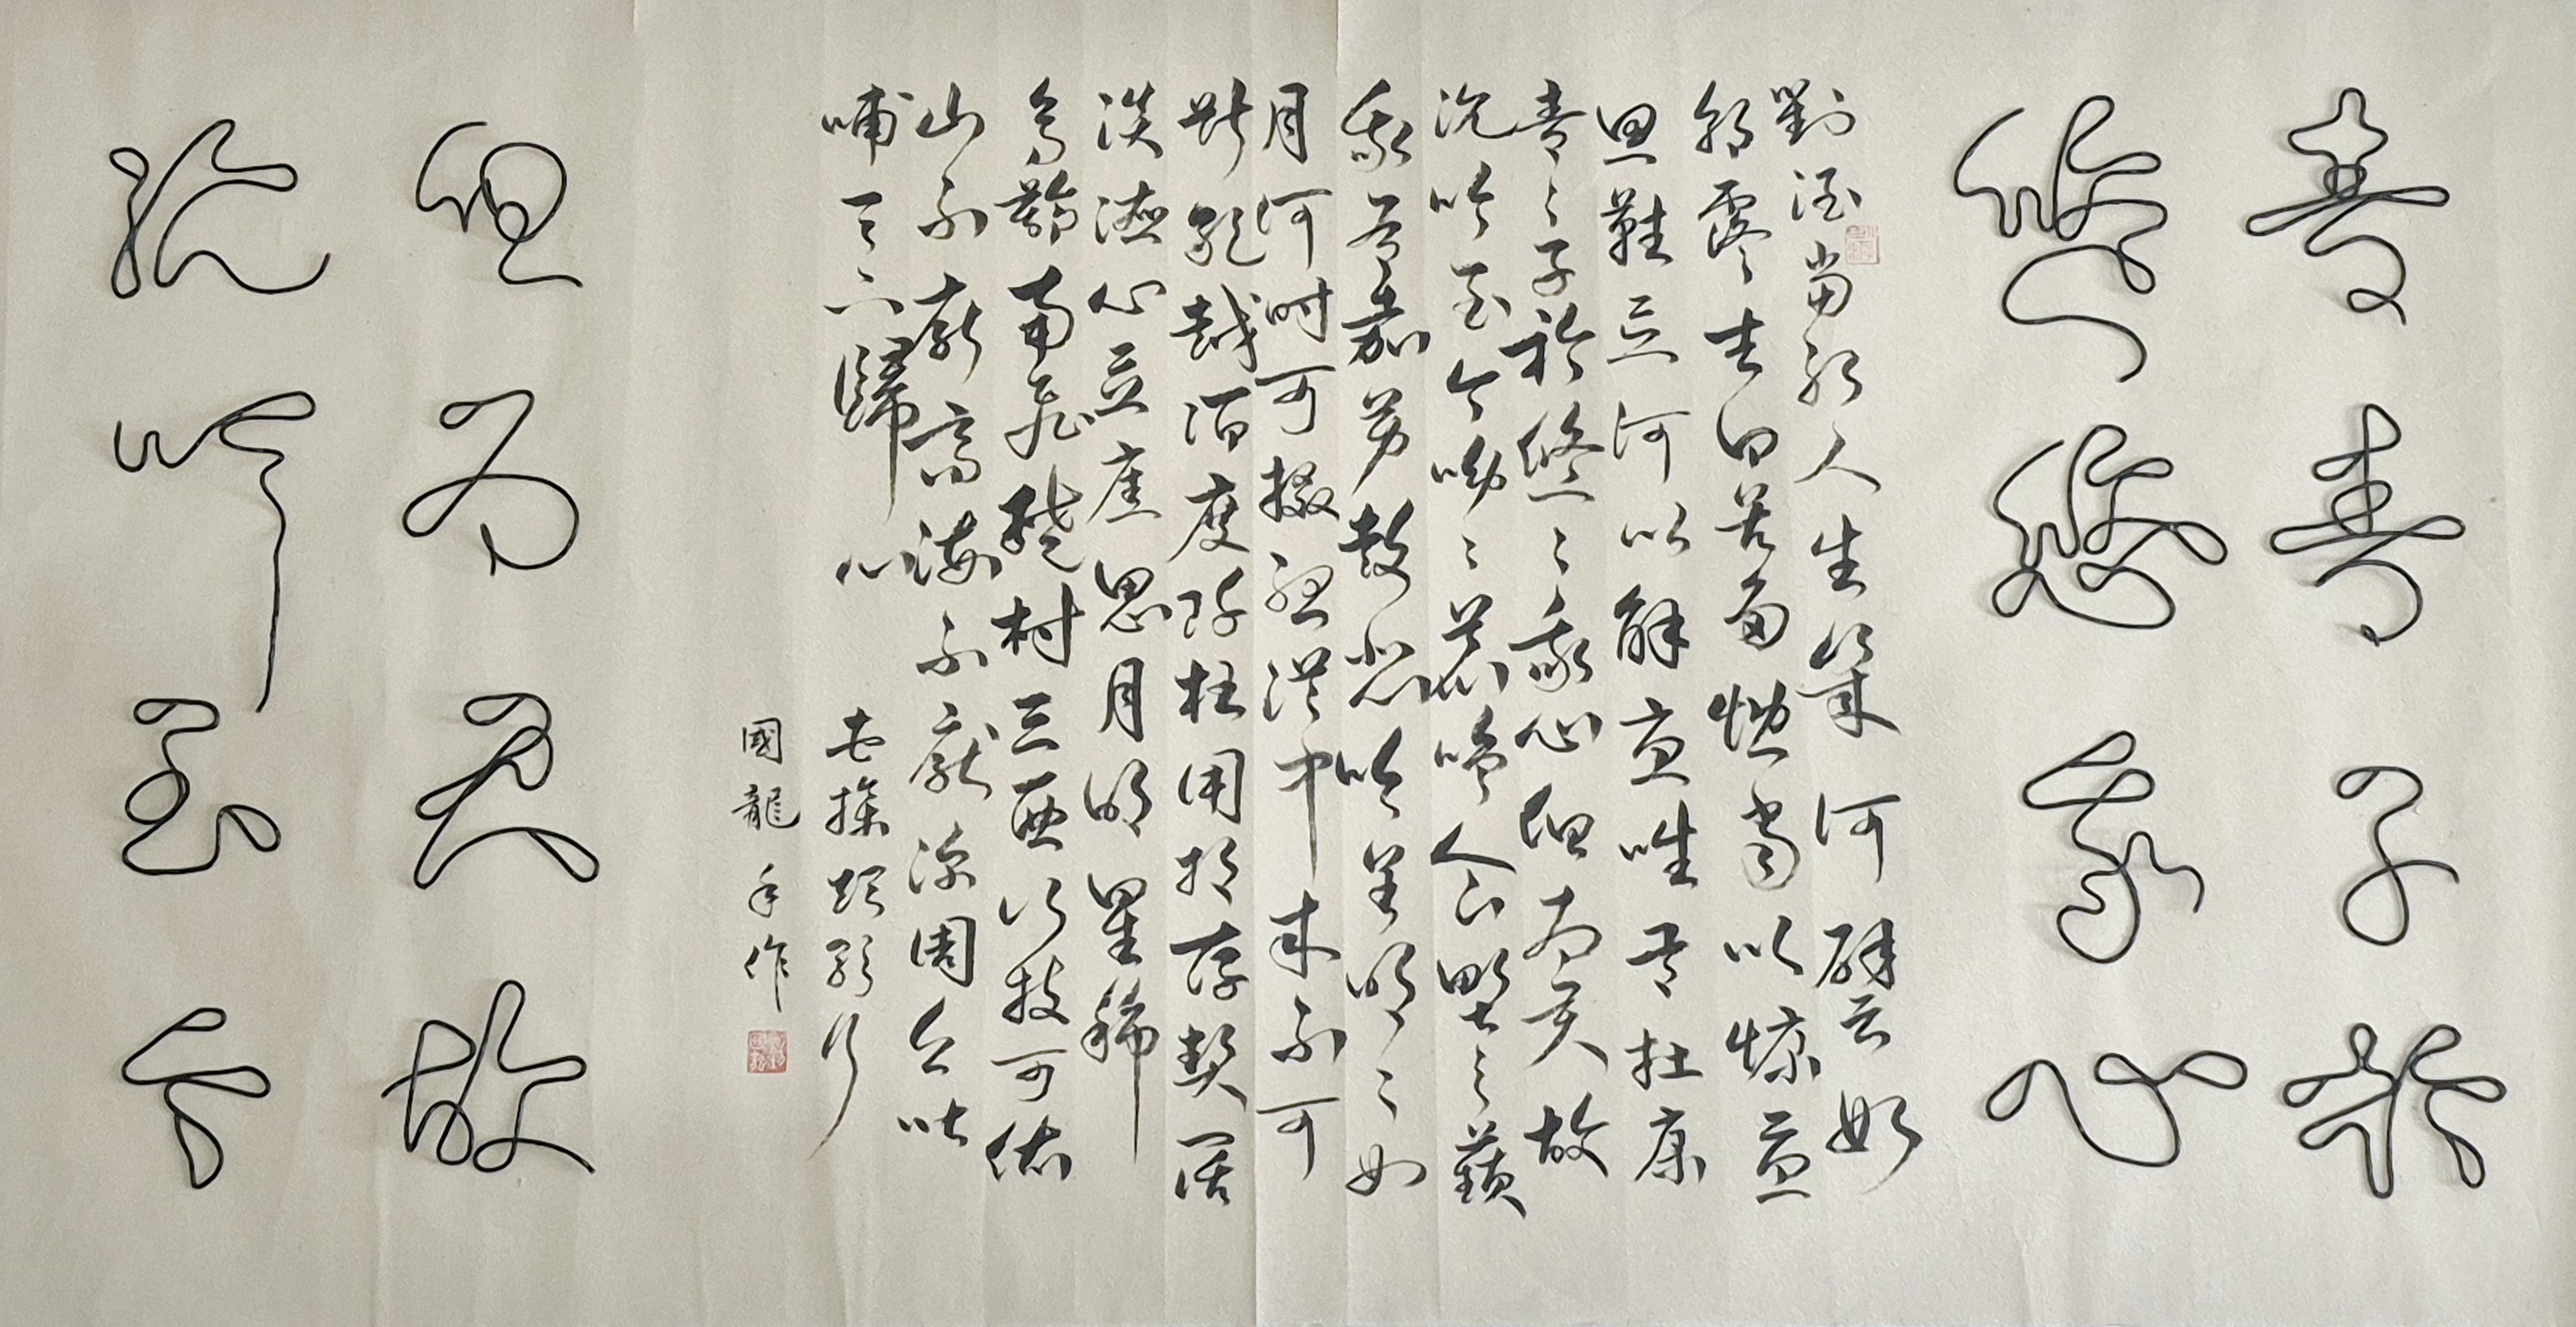 青青子衿
悠悠我心
對酒當歌人生幾何譬如
朝露去日苦多慨當以慷憂
思難忘何以解憂唯有杜康
青〻子衿悠〻我心但為君故
沉吟至今呦〻鹿鳴食野之蘋
我有嘉賓鼓瑟吹笙明〻如
月何時可掇憂從中來不可
斷絕越陌度阡枉用相存契闊
談讌心念舊恩月明星稀
烏鵲南飛繞樹三匝何枝可依
山不厭高海不厭深周公吐
哺天下歸心 曹操短歌行
國龍手作
但為君故
沉吟至今